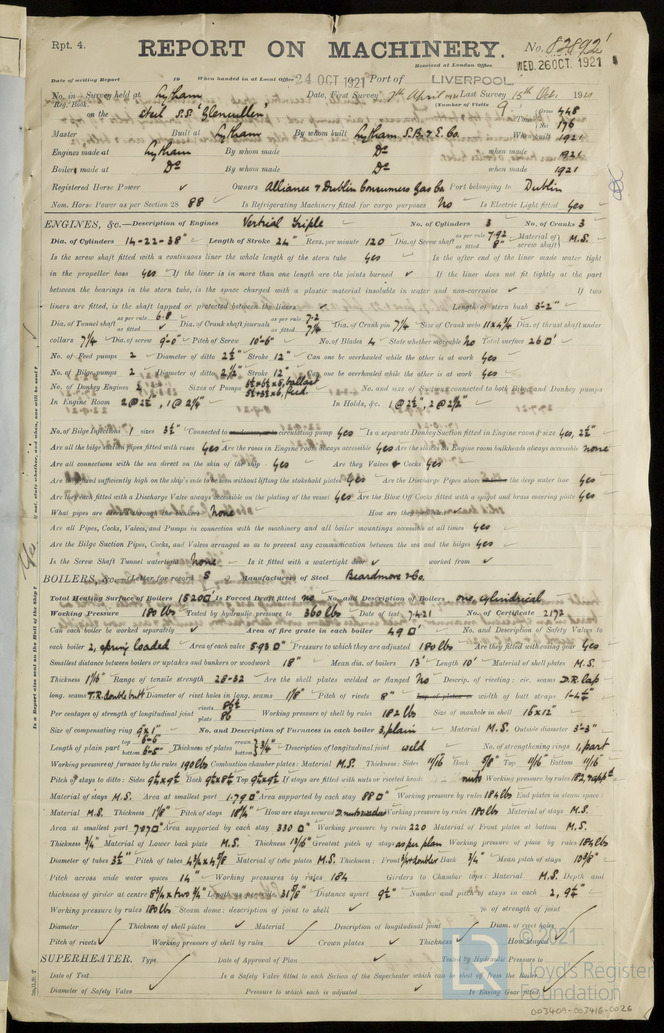 Rpt. 4.
REPORT ON MACHINERY.
No. 82892
Received at London Office WED. 26 OCT. 1921
Date of writing Report 19 When handed in at Local Office 24 OCT 1921 Port of LIVERPOOL
No. in Survey held at Lytham Date, First Survey 7th April Last Survey 15th Oct. 1920
Reg. Book. (Number of Visits 9
on the Steel S.S. 'Glencullen' Gross 448
Net 176
Master Built at Lytham By whom built Lytham S.B. & E. Co. When built 1921
Engines made at Lytham By whom made Do when made 1921
Boilers made at Do By whom made Do when made 1921
Registered Horse Power Owners Alliance & Dublin Consumers Gas Co Port belonging to Dublin
Nom. Horse Power as per Section 28 88 Is Refrigerating Machinery fitted for cargo purposes No Is Electric Light fitted Yes
ENGINES, &c.—Description of Engines Vertical Triple No. of Cylinders 3 No. of Cranks 3
Dia. of Cylinders 14-22-38" Length of Stroke 24" Revs. per minute 120 Dia. of Screw shaft as per rule 7.92 as fitted 8" Material of screw shaft M.S.
Is the screw shaft fitted with a continuous liner the whole length of the stern tube Yes Is the after end of the liner made water tight
in the propeller boss Yes If the liner is in more than one length are the joints burned If the liner does not fit tightly at the part
between the bearings in the stern tube, is the space charged with a plastic material insoluble in water and non-corrosive If two
liners are fitted, is the shaft lapped or protected between the liners Length of stern bush 3'-2"
Dia. of Tunnel shaft as per rule 6.8 as fitted Dia. of Crank shaft journals as per rule 7.2 as fitted 7 1/4 Dia. of Crank pin 7 1/4 Size of Crank webs 11x4 3/4 Dia. of thrust shaft under
collars 7 1/4 Dia. of screw 9'-0" Pitch of Screw 10'-6" No. of Blades 4 State whether moveable No Total surface 26 □'
No. of Feed pumps 2 Diameter of ditto 2 1/2" Stroke 12" Can one be overhauled while the other is at work Yes
No. of Bilge pumps 2 Diameter of ditto 2 1/2" Stroke 12" Can one be overhauled while the other is at work Yes
No. of Donkey Engines Sizes of Pumps ballast feed No. and size of Suctions connected to both Bilge and Donkey pumps
In Engine Room 2 @ 2 1/2", 1 @ 2 1/4" In Holds, &c. 1 @ 2 1/2", 2 @ 2 1/2"
No. of Bilge Injections 1 sizes 3 1/2" Connected to circulating pump Yes Is a separate Donkey Suction fitted in Engine room & size Yes, 2 1/2"
Are all the bilge suction pipes fitted with roses Yes Are the roses in Engine room always accessible Yes Are the sluices on Engine room bulkheads always accessible none
Are all connections with the sea direct on the skin of the ship Yes Are they Valves & Cocks Yes
sufficiently high on the ship's side to be seen without lifting the stokehold plates Yes Are the Discharge Pipes above the deep water line Yes
Are they each fitted with a Discharge Valve always accessible on the plating of the vessel Yes Are the Blow Off Cocks fitted with a spigot and brass covering plate Yes
What pipes are none How are they
Are all Pipes, Cocks, Valves, and Pumps in connection with the machinery and all boiler mountings accessible at all times Yes
Are the Bilge Suction Pipes, Cocks, and Valves arranged so as to prevent any communication between the sea and the bilges Yes
Is the Screw Shaft Tunnel watertight None Is it fitted with a watertight door worked from
BOILERS, &c.—(Letter for record S Manufacturers of Steel Beardmore & Co.
Total Heating Surface of Boilers 1520 □' Is Forced Draft fitted no No. and Description of Boilers one, cylindrical
Working Pressure 180 lbs Tested by hydraulic pressure to 360 lbs Date of test 7.4.21 No. of Certificate 2172
Can each boiler be worked separately Area of fire grate in each boiler 49 □' No. and Description of Safety Valves to
each boiler 2, spring loaded Area of each valve 5.93 □" Pressure to which they are adjusted 180 lbs Are they fitted with easing gear Yes
Smallest distance between boilers or uptakes and bunkers or woodwork 18" Mean dia. of boilers 13' Length 10' Material of shell plates M.S.
Thickness 1 1/16" Range of tensile strength 28-32 Are the shell plates welded or flanged No Descrip. of riveting: cir. seams D.R. lap
long. seams T.R. double butt Diameter of rivet holes in long. seams 1 1/8" Pitch of rivets 8" width of butt straps
Per centages of strength of longitudinal joint rivets plate 86 Working pressure of shell by rules 182 lbs Size of manhole in shell 16x12"
Size of compensating ring 9x1" No. and Description of Furnaces in each boiler 3, plain Material M.S. Outside diameter 3'-3"
Length of plain part top 6-6 bottom 6-5" Thickness of plates crown bottom 3/4" Description of longitudinal joint weld No. of strengthening rings 1, part
Working pressure of furnace by the rules 190 lbs Combustion chamber plates: Material M.S. Thickness: Sides 11/16 Back 5/8" Top 11/16 Bottom 11/16"
Pitch of stays to ditto: Sides Back Top If stays are fitted with nuts or riveted heads nuts Working pressure by rules
Material of stays M.S. Area at smallest part 1.79 □" Area supported by each stay 88 □" Working pressure by rules 184 lbs End plates in steam space:
Material M.S. Thickness 1 1/8" Pitch of stays 18 1/4" How are stays secured D. nuts Working pressure by rules 180 lbs Material of stays M.S.
Area at smallest part Area supported by each stay 330 □" Working pressure by rules 220 Material of Front plates at bottom M.S.
Thickness 3/4" Material of Lower back plate M.S. Thickness 13/16" Greatest pitch of stays as per plan Working pressure of plate by rules 184 lbs
Diameter of tubes 3 1/2" Pitch of tubes Material of tube plates M.S. Thickness: Front Back 3/4" Mean pitch of stays 10 3/8"
Pitch across wide water spaces 14" Working pressures by rules 184 Girders to Chamber tops: Material M.S. Depth and
thickness of girder at centre 8 3/4 x two 3/4" Length Distance apart 9 1/2" Number and pitch of stays in each 2, 9 1/2"
Working pressure by rules 180 lbs Steam dome: description of joint to shell % of strength of joint
Diameter Thickness of shell plates Material Description of longitudinal joint Diam. of rivet holes
Pitch of rivets Working pressure of shell by rules Crown plates Thickness How stayed
SUPERHEATER. Type Date of Approval of Plan Tested by Hydraulic Pressure to
Date of Test Is a Safety Valve fitted to each Section of the Superheater which can be shut off from the Boiler
Diameter of Safety Valve Pressure to which each is adjusted Is Easing Gear fitted
© 2021
Lloyd's Register
Foundation
003409-003416-0026